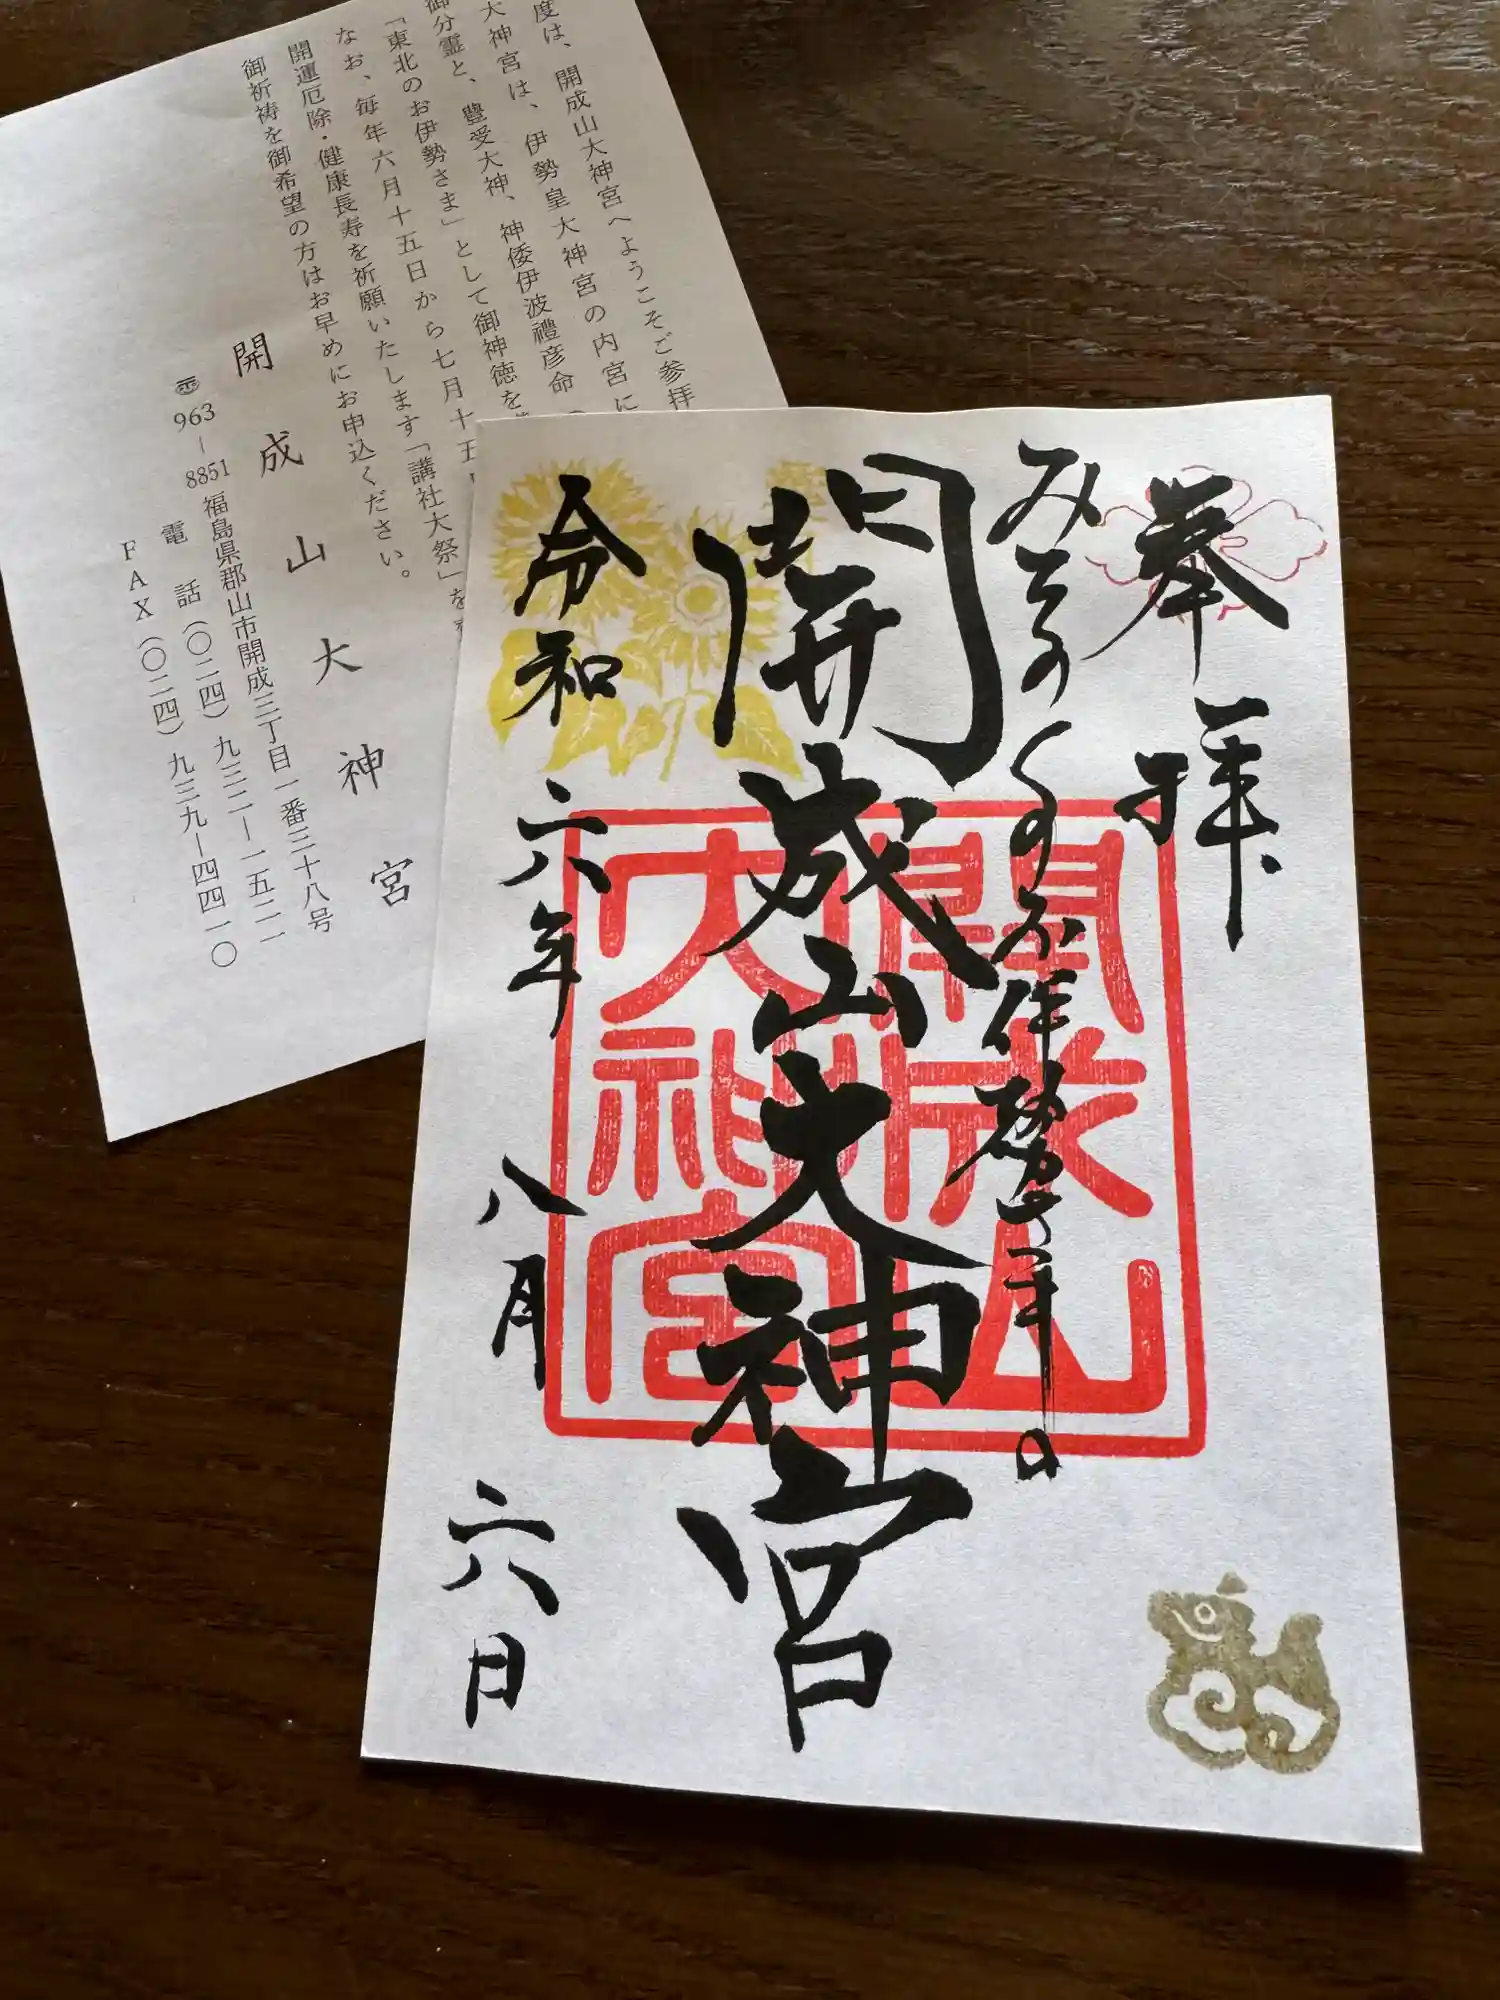 度は、開成山大神宮へようこそご参拝
大神宮は、伊勢皇大神宮の内宮に
御分霊と、豊受大神、神倭伊波禮彦命
「東北のお伊勢さま」として御神徳を
なお、毎年六月十五日から七月十五
開運厄除・健康長寿を祈願いたします「講社大祭」を
御祈祷を御希望の方はお早めにお申込ください。
開成山大神宮
〠963-8851 福島県郡山市開成三丁目一番三十八号
電話（〇二四）九三二―一五二一
FAX（〇二四）九三九―四四一〇
奉拝
みちのくのお伊勢
開成山大神宮
令和六年八月六日
開成山
大神宮